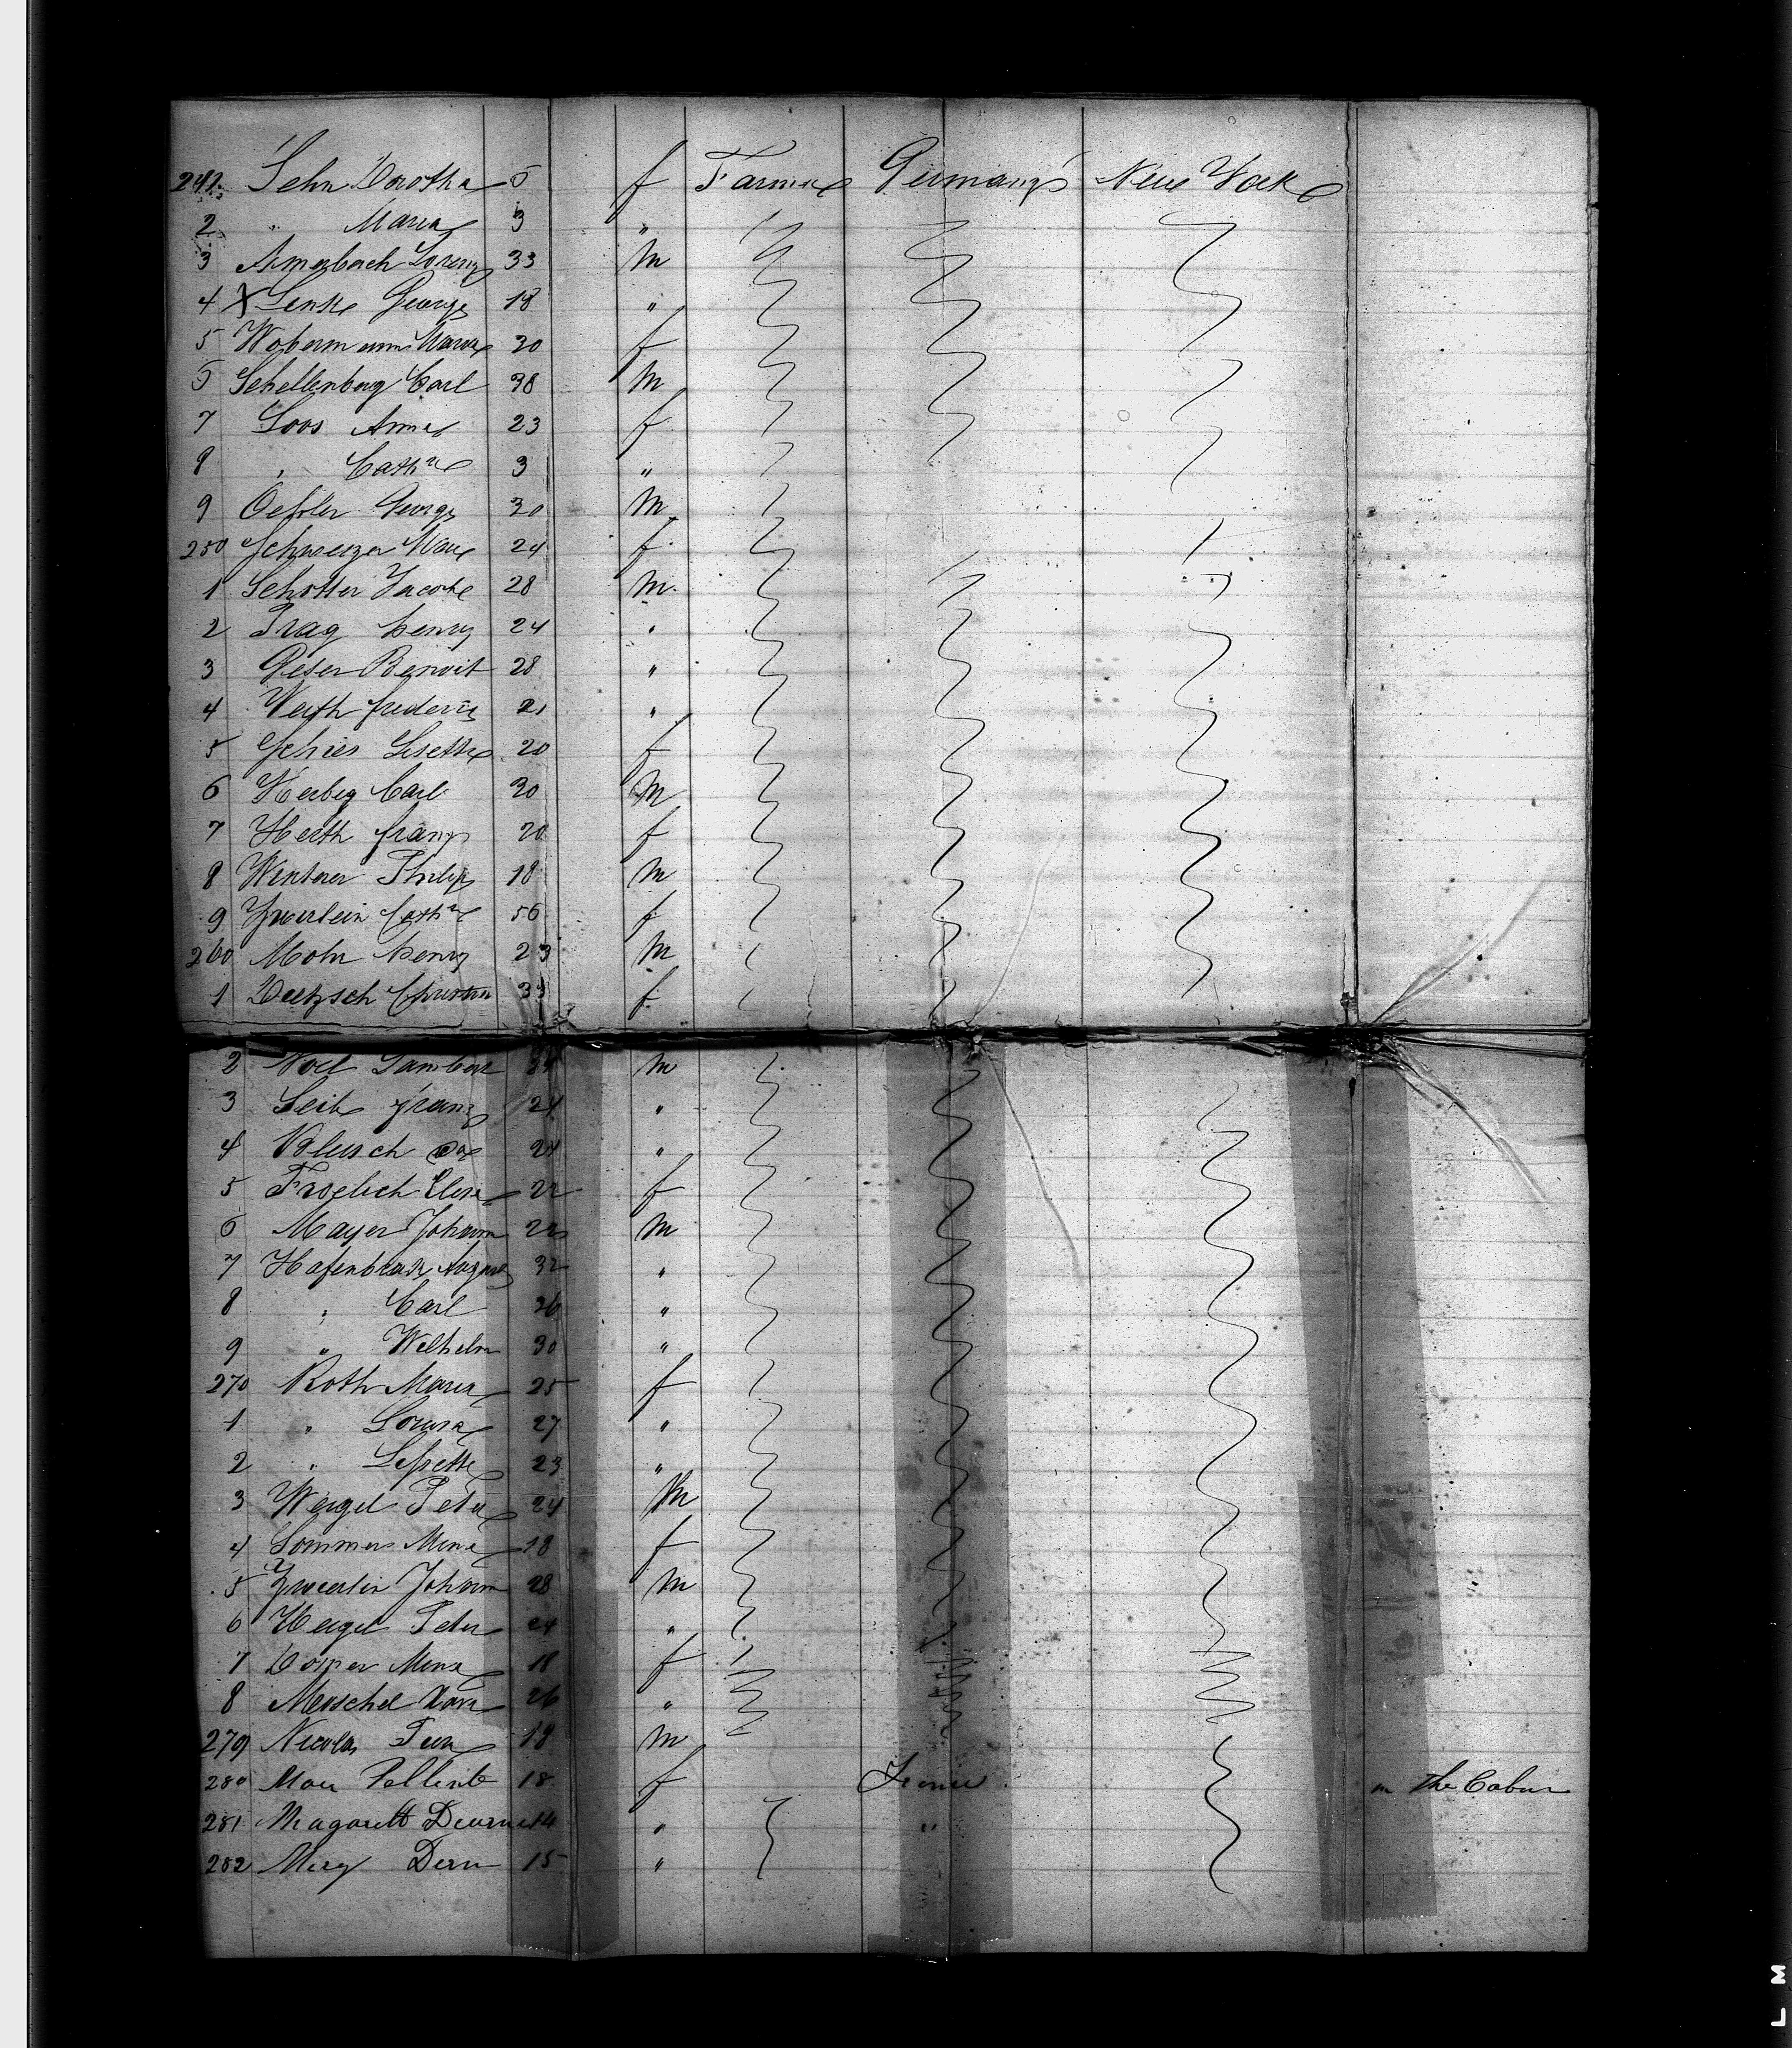 241. Sehn Dorothea 5 f Farmer Germany New York
2 " Maria 3 "
3 Amerbach Lorenz 33 m
4 X Lenke George 18 "
5 Wobermann Maria 30 f
6 Schellenberg Carl 38 m
7 Loos Anna 23 f
8 " Cathne 3 "
9 Oessler George 30 m
250 Schweizer Marie 24 f
1 Schotter Jacob 28 m
2 Prag henry 24 "
3 Geser Benoit 28 "
4 Veith frederic 21 "
5 Schies Lisette 20 f
6 Herbig Carl 30 m
7 Herth franz 20 f
8 Wintner Philip 18 m
9 Zwerlein Cathne 56 f
260 Mohr henry 23 m
1 Dietzsch Christin 33 f
2 Noel Lambert m
3 Leib franz 24 "
4 24 "
5 Froelich Elise 22 f
6 Mayer Johann 22 m
7 Hafenbrak August 32 "
8 " Carl 26 "
9 " Wilhelm 30 "
270 Roth Maria 25 f
1 " Louisa 27 "
2 " Lisette 23 "
3 Weigel Peter 24 m
4 Sommer Mina 18 f
5 Zwerlin Johann 28 m
6 Heigel Peter 24 "
7 Dorper Mina 18 f
8 Merschel Dora 26 "
279 Nicolas 18 m
280 Mari 18 f in the Cabin
281 Magarett 14 " "
282 Mery Dern 15 "